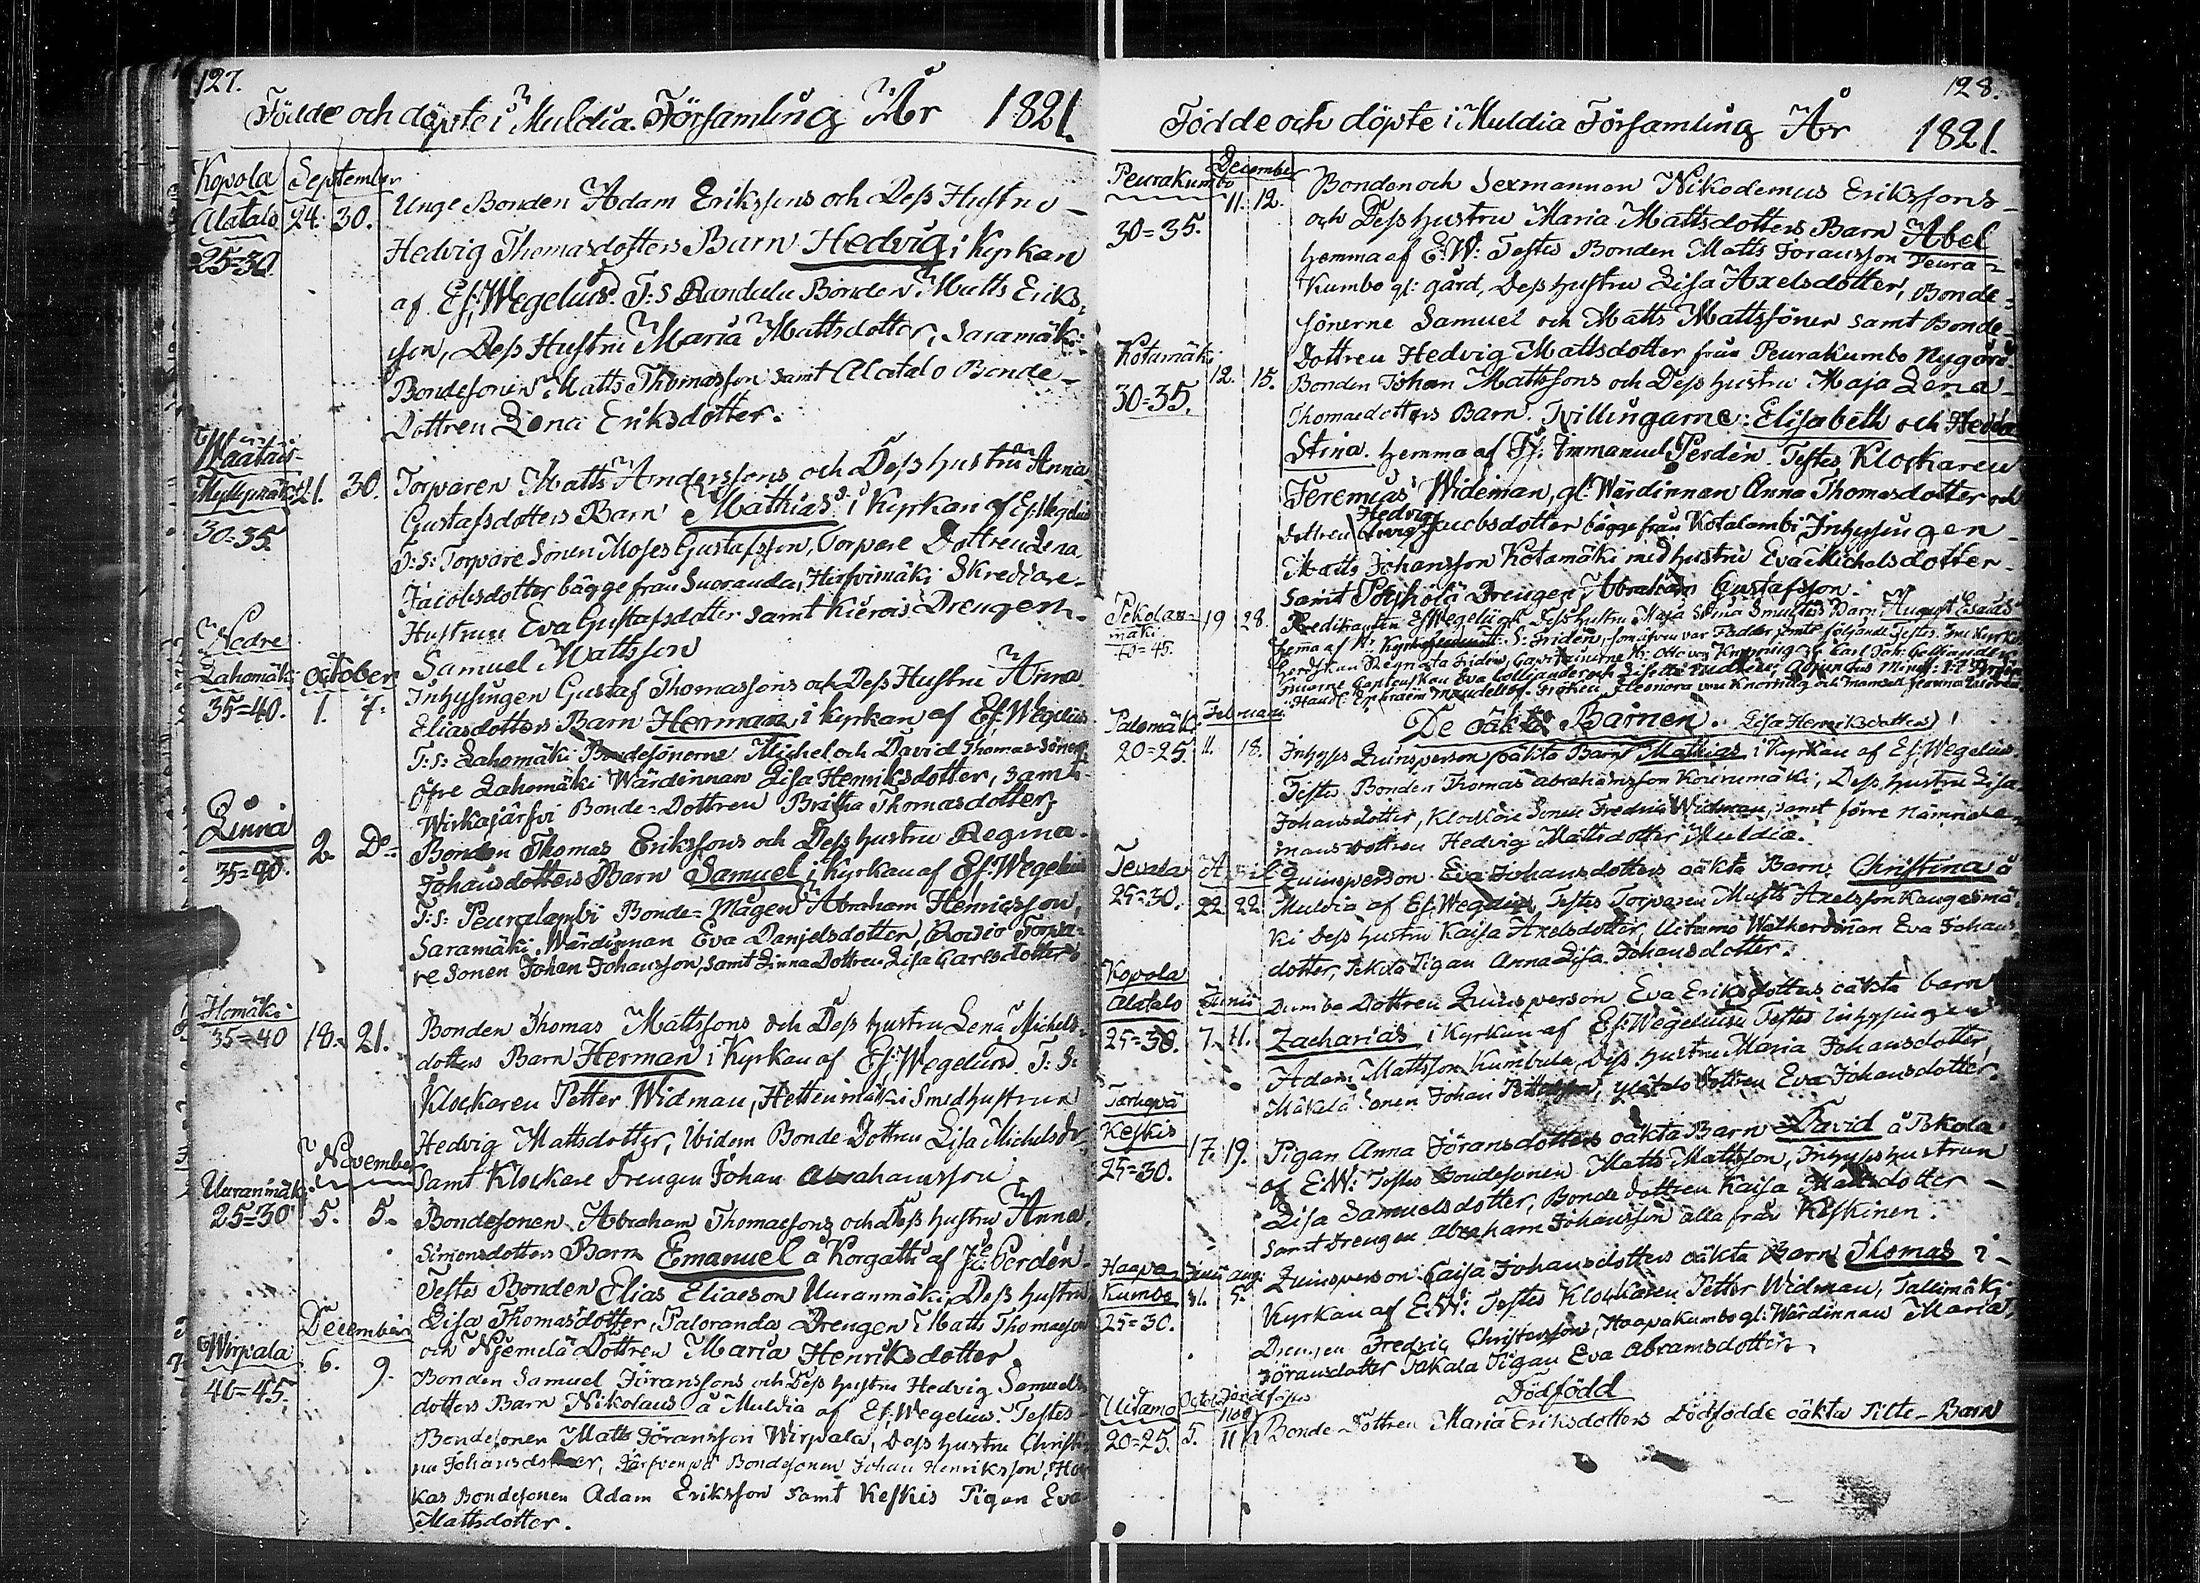 127.
Födde och döpte i Muldia Församling År 1821.
Kopola September
Alatalo 24. 30. Unge Bonden Adam Erikssons och Dess Hustru
25=30. Hedvig Thomasdotters Barn Hedvig i Kyrkan
af Ef: Wegelius. T:s Randula Bonden Matts Eriks-
son, Dess Hustru Maria Mattsdotter, Saramäki
Bondesonen Matts Thomasson samt Alatalo Bonde-
Dottren Lena Eriksdotter.
21. 30. Torparen Matts Anderssons och Dess hustru Anna
30=35. Gustafsdotters Barn Mathias i Kyrkan af Ef: Wegelius
T:s: Torpare Sonen Moses Gustafsson, Torpare Dottren Lena
Jacobsdotter bägge från Suoranda, Hirsvimäki Skreddare
Hustrun Eva Gustafsdotter samt Drengen
Samuel Mattsson
Nedre
Lahomäki October Inhysingen Gustaf Thomassons och Dess Hustru Anna
35=40. 1. 7. Eliasdotters Barn Herman i Kyrkan af Ef: Wegelius
T:s: Lahomäki Bondesönerne Michel och David Thomas Söner
Öfre Lahomäki Wärdinnan Lisa Henriksdotter, samt
Wirkajärfvi Bonde-Dottren Bretha Thomasdotter
Linna
35=40. 2. Do Bonden Thomas Erikssons och Dess hustru Regina
Johansdotters Barn Samuel i Kyrkan af Ef: Wegelius
T:s: Peuralambi Bonde-Mågen Abraham Henricsson,
Saramäki Wärdinnan Eva Danjelsdotter, Torpa-
re Sonen Johan Johansson, samt Linna Dottren Lisa Carlsdotter
Homäki
35=40 18. 21. Bonden Thomas Mattssons och Dess hustru Lena Michels-
dotters Barn Herman i Kyrkan af Ef: Wegelius. T:s:
Klockaren Petter Widman, Hettinmäki Smedhustrun
Hedvig Mattsdotter, Ibidem Bonde-Dottren Lisa Michelsdr
November samt Klockare Drengen Johan Abrahamsson
Uuranmäki
25=30 5. 5. Bondesonen Abraham Thomaesons och Dess hustru Anna
Simonsdotters Barn Emanuel å Korgatti af Perdén.
Testes Bonden Elias Eliaeson Uuranmäki, Dess hustru
December Lisa Thomasdotter, Paloranda Drengen Matts Thomaeson
och Niemelä Dottren Maria Henriksdotter.
Wirpala 6. 9. Bonden Samuel Göranssons och Dess hustru Hedvig Samuels-
40=45. dotters Barn Nikolaus å Muldia af Ef: Wegelius. Testes
Bondesonen Matts Göransson Wirpala, Dess hustru Christi-
na Johansdotter, Järfvenpä Bondesonen Johan Henriksson,
kas Bondesonen Adam Eriksson samt Keskis Pigan Eva
Mattsdotter.
128.
Födde och döpte i Muldia Församling År 1821.
Peurakumbo December Bonden och Sexmannen Nikodemus Erikssons
30=35. 11. 12. och Dess hustru Maria Mattsdotters Barn Abel
hemma af E:W: Testes Bonden Matts Göransson Peura-
kumbo gl: gård, Dess hustru Lisa Axelsdotter, Bonde-
sönerne Samuel och Matts Mattssöner samt Bonde-
Dottren Hedvig Mattsdotter från Peurakumbo Nygård.
Kotamäki
30=35. 12. 15. Bonden Johan Mattssons och Dess hustru Maja Lena
Thomasdotters Barn Tvillingarne: Elisabeth och Hedda
Stina. hemma af Immanuel Perdén. Testes Klockaren
Jeremias Wideman, gl: Wärdinnan Anna Thomasdotter och
dottren Hedvig Jacobsdotter bägge från Kotalambi Inhysingen
Matts Johansson Kotamäki med hustru Eva Michelsdotter
samt Pohjola Drengen Abraham Gustafsson.
19 28.
40=45.
Februari De oäkta Barnen. Lisa Henriksdotters
20=25. 11. 18. Inhyses Quinsperson oäkta Barn Mathias i Kyrkan af Ef: Wegelius
Testes Bonden Thomas Abrahamsson, Dess hustru Lisa
Johansdotter, Klockare Sonen Fredric Widman, samt förre Nämnde-
mansdottren Hedvig Mattsdotter Muldia.
Tevala April Quinsperson Eva Johansdotters oäkta Barn Christina å
25=30. 22 22 Muldia af Ef: Wegelius Testes Torparen Matts Axelsson Kangasmä-
ki Dess hustru Kaisa Axelsdotter, Uitamo Eva Johans-
dotter, Pigan Anna Lisa Johansdotter.
Kopola
Alatalo Junii Dottren Quinsperson Eva Eriksdotters oäkta barn
25=30. 7. 11. Zacharias i Kyrkan af Ef: Wegelius Testes inhysingen
Adam Mattsson Kumbula, Dess hustru Maria Johansdotter,
Mäkelä Sonen Johan, Ylätalo Dottren Eva Johansdotter.
Keskis 17. 19. Pigan Anna Göransdotters oäkta Barn David å
25=30. af E:W: Testes Bondesonen Matts Mattsson, Inhyses hustrun
Lisa Samuelsdotter, Bonde dottren Kaisa Mattsdotter
samt drengen Abraham Johansson alla från Keskinen.
Haapa Aug:
Kumbo 5. Quinsperson Caisa Johansdotters oäkta Barn Thomas i
25=30. Kyrkan af E:W: Testes Klockaren Petter Widman, Tallimäki
Drengen Fredric Christersson, Haapakumbo gl: Wärdinnan Maria
Göransdotter Pigan Eva Abramsdotter.
Dödfödd
Uitamo Octob Nov
20=25. 5. 11 Bonde-Dottren Maria Eriksdotters dödfödde oäkta Barn